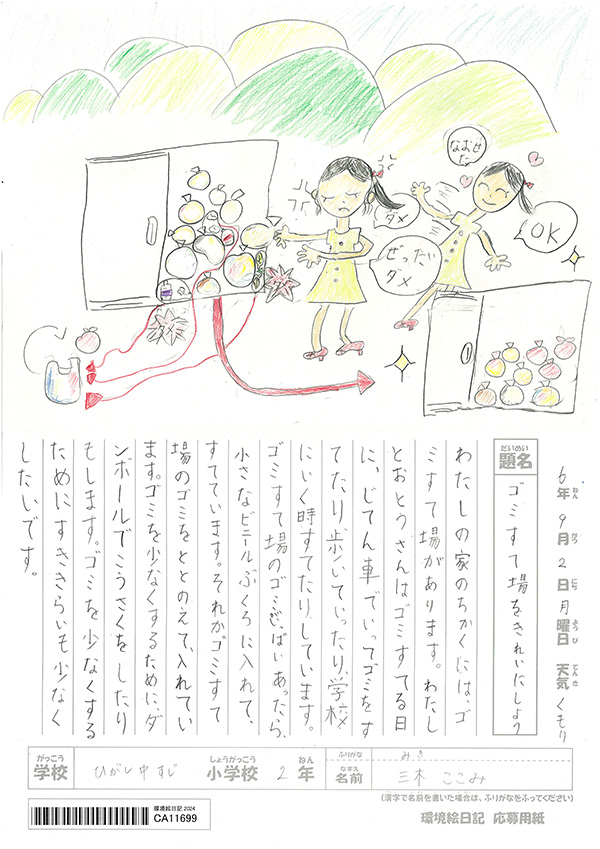 なおせた
ダメ
ぜったいダメ
OK
6年 9月 2日 月曜日 天気 くもり
ねん がつ にち ようび てんき
だいめい
題名
ゴミすて場をきれいにしよう
わたしの家のちかくには、ゴ
ミすて場があります。わたし
とおとうさんはゴミすてる日
に、じてん車でいってゴミをす
てたり歩いていったり、学校
にいく時すてたりしています。
ゴミすて場のゴミがいっぱいあったら、
小さなビニールぶくろに入れて、
すてています。それかゴミすて
場のゴミをととのえて、入れてい
ます。ゴミを少なくするために、ダ
ンボールでこうさくをしたり
もします。ゴミを少なくする
ためにすききらいも少なく
したいです。
がっこう
学校
ひがし中すじ
しょうがっこう
小学校
2
ねん
年
ふりがな
みき
なまえ
名前
三木 ここみ
(漢字で名前を書いた場合は、ふりがなをふってください)
環境絵日記 2024
CA11699
環境絵日記 応募用紙